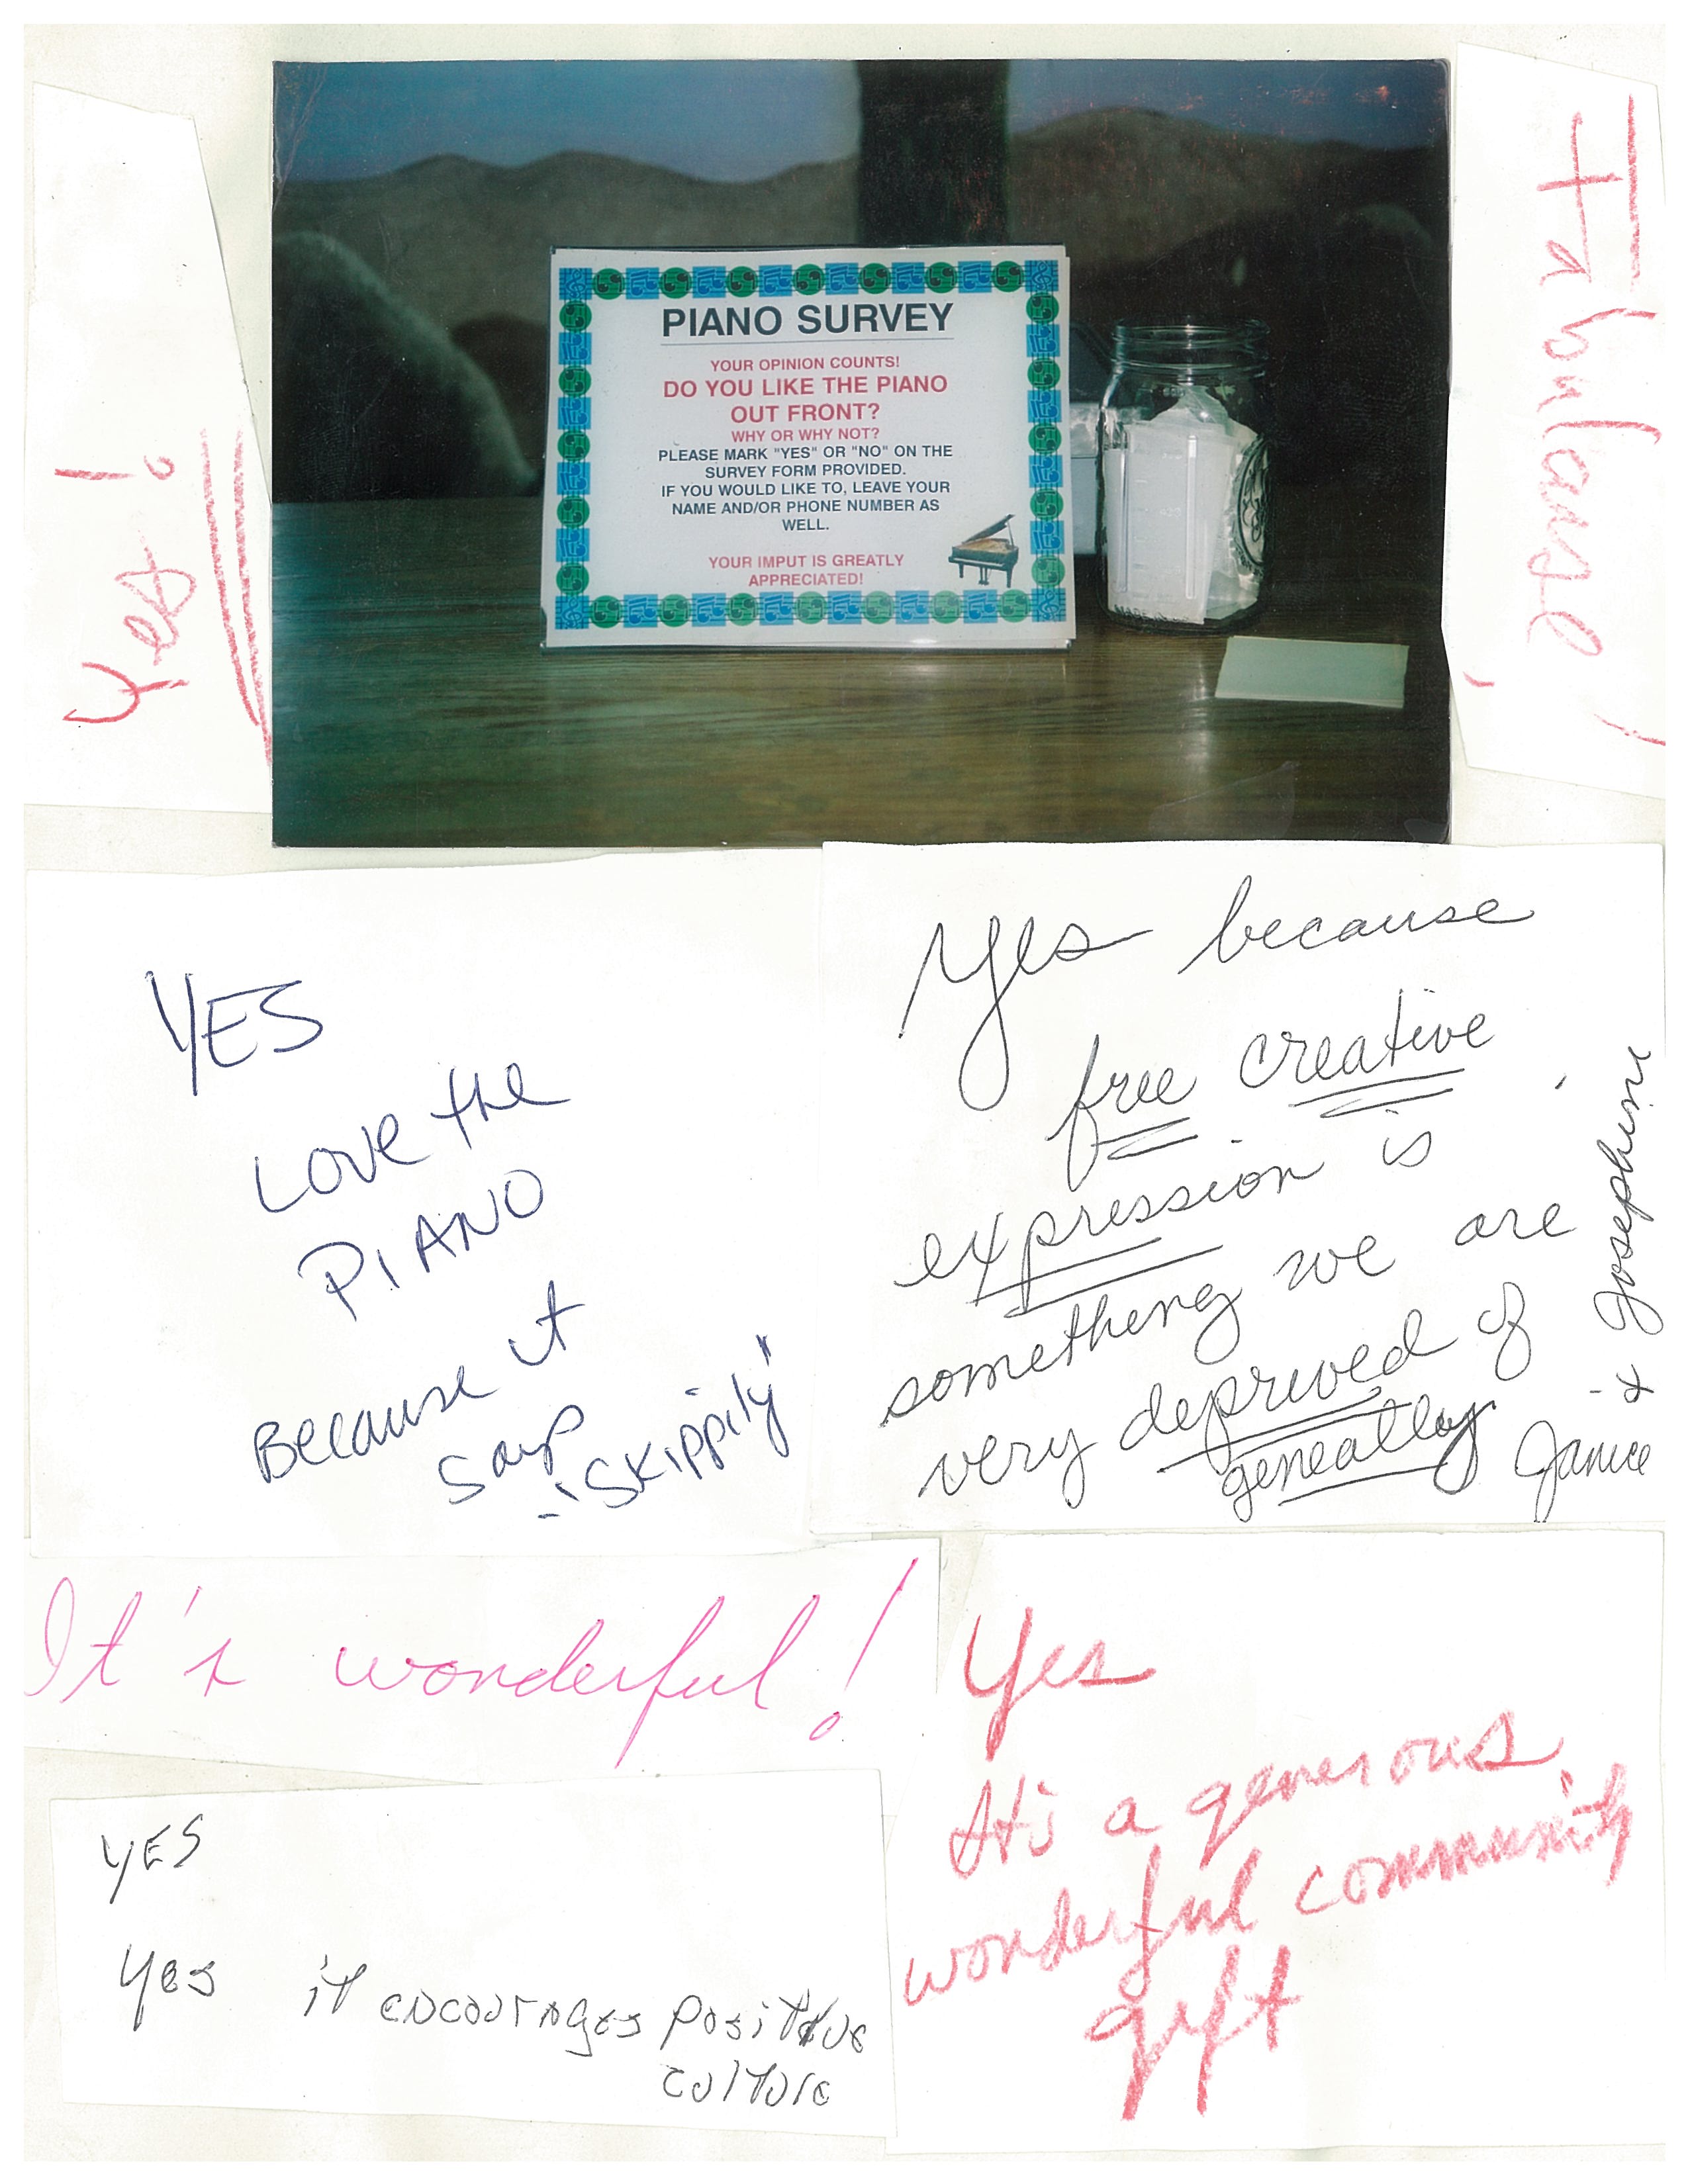 Yes!
PIANO SURVEY
YOUR OPINION COUNTS!
DO YOU LIKE THE PIANO
OUT FRONT?
WHY OR WHY NOT?
PLEASE MARK "YES" OR "NO" ON THE
SURVEY FORM PROVIDED.
IF YOU WOULD LIKE TO, LEAVE YOUR
NAME AND/OR PHONE NUMBER AS
WELL.
YOUR IMPUT IS GREATLY
APPRECIATED!
YES
LOVE the
PIANO
Because it
says
"SKippily"
Yes because
free creative
expression is
something we are
very deprived of
geneatlly
Janice
& Josephine
It's wonderful!
YES
Yes it encourages positive
culture
Yes
It's a generous,
wonderful community
gift